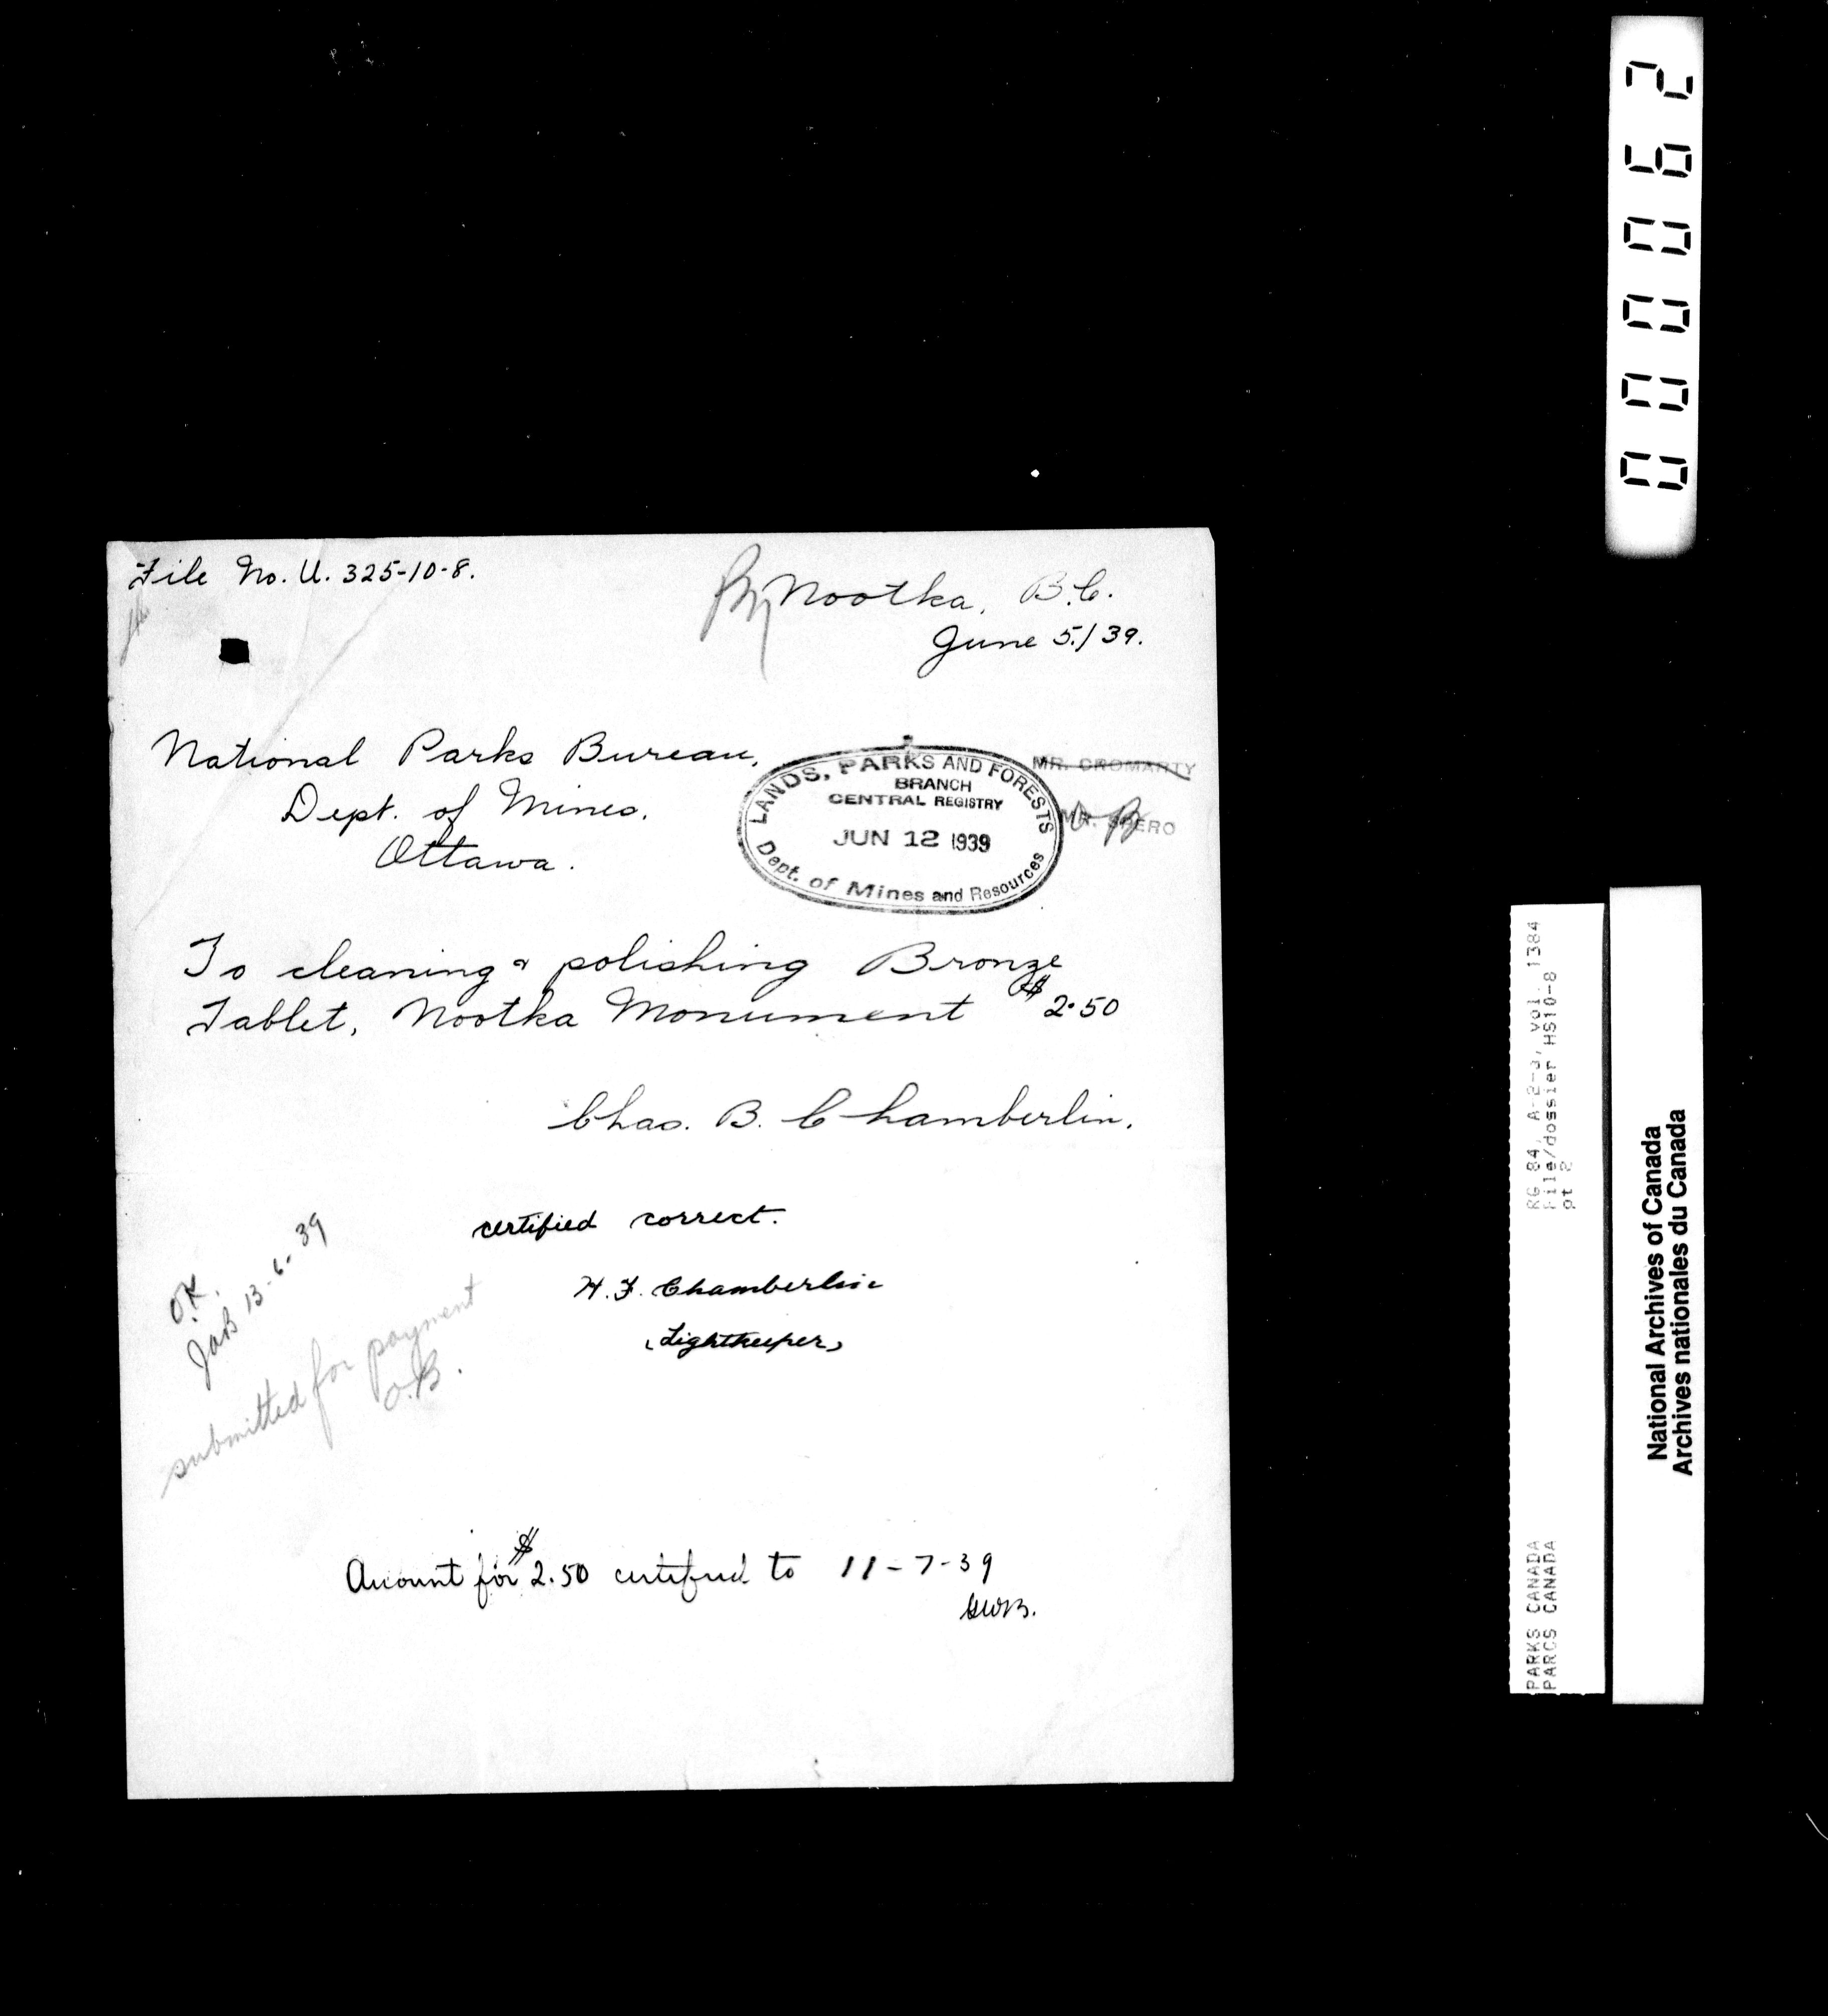 File No. U. 325-10-8.
Nootka, B.C.
June 5./39.
National Parks Bureau,
Dept. of Mines.
Ottawa.
LANDS, PARKS AND FORESTS
BRANCH
CENTRAL REGISTRY
JUN 12 1939
Dept. of Mines and Resources
MR. CROMARTY
MR. SPERO
To cleaning & polishing Bronze
Tablet, Nootka Monument $2.50
Chas. B. Chamberlin.
certified correct.
H. F. Chamberlin
(Lightkeeper)
O.K.
JAB 13-6-39
submitted for payment
O.B.
Account for $2.50 certified to 11-7-39
000062
RG 84, A-2-a, vol. 1384
File/dossier HS10-8
pt 2
PARKS CANADA
PARCS CANADA
National Archives of Canada
Archives nationales du Canada